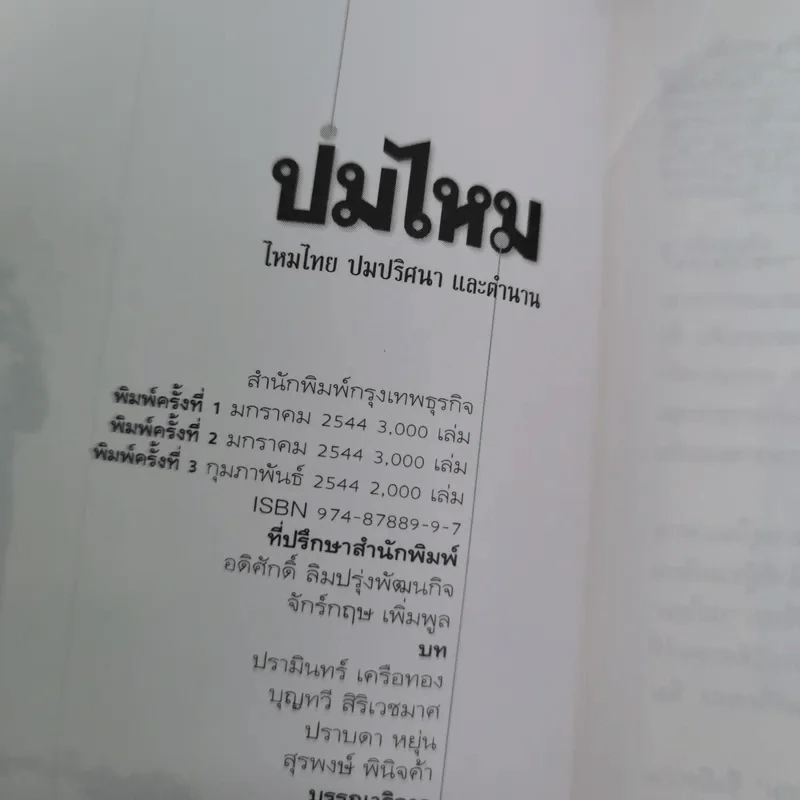 ปมไหม
ไหมไทย ปมปริศนา และตำนาน
สำนักพิมพ์กรุงเทพธุรกิจ
พิมพ์ครั้งที่ 1 มกราคม 2544 3,000 เล่ม
พิมพ์ครั้งที่ 2 มกราคม 2544 3,000 เล่ม
พิมพ์ครั้งที่ 3 กุมภาพันธ์ 2544 2,000 เล่ม
ISBN 974-87889-9-7
ที่ปรึกษาสำนักพิมพ์
อดิศักดิ์ ลิมปรุ่งพัฒนกิจ
จักร์กฤษ เพิ่มพูล
บท
ปรามินทร์ เครือทอง
บุญทวี สิริเวชมาศ
ปราบดา หยุ่น
สุรพงษ์ พินิจค้า